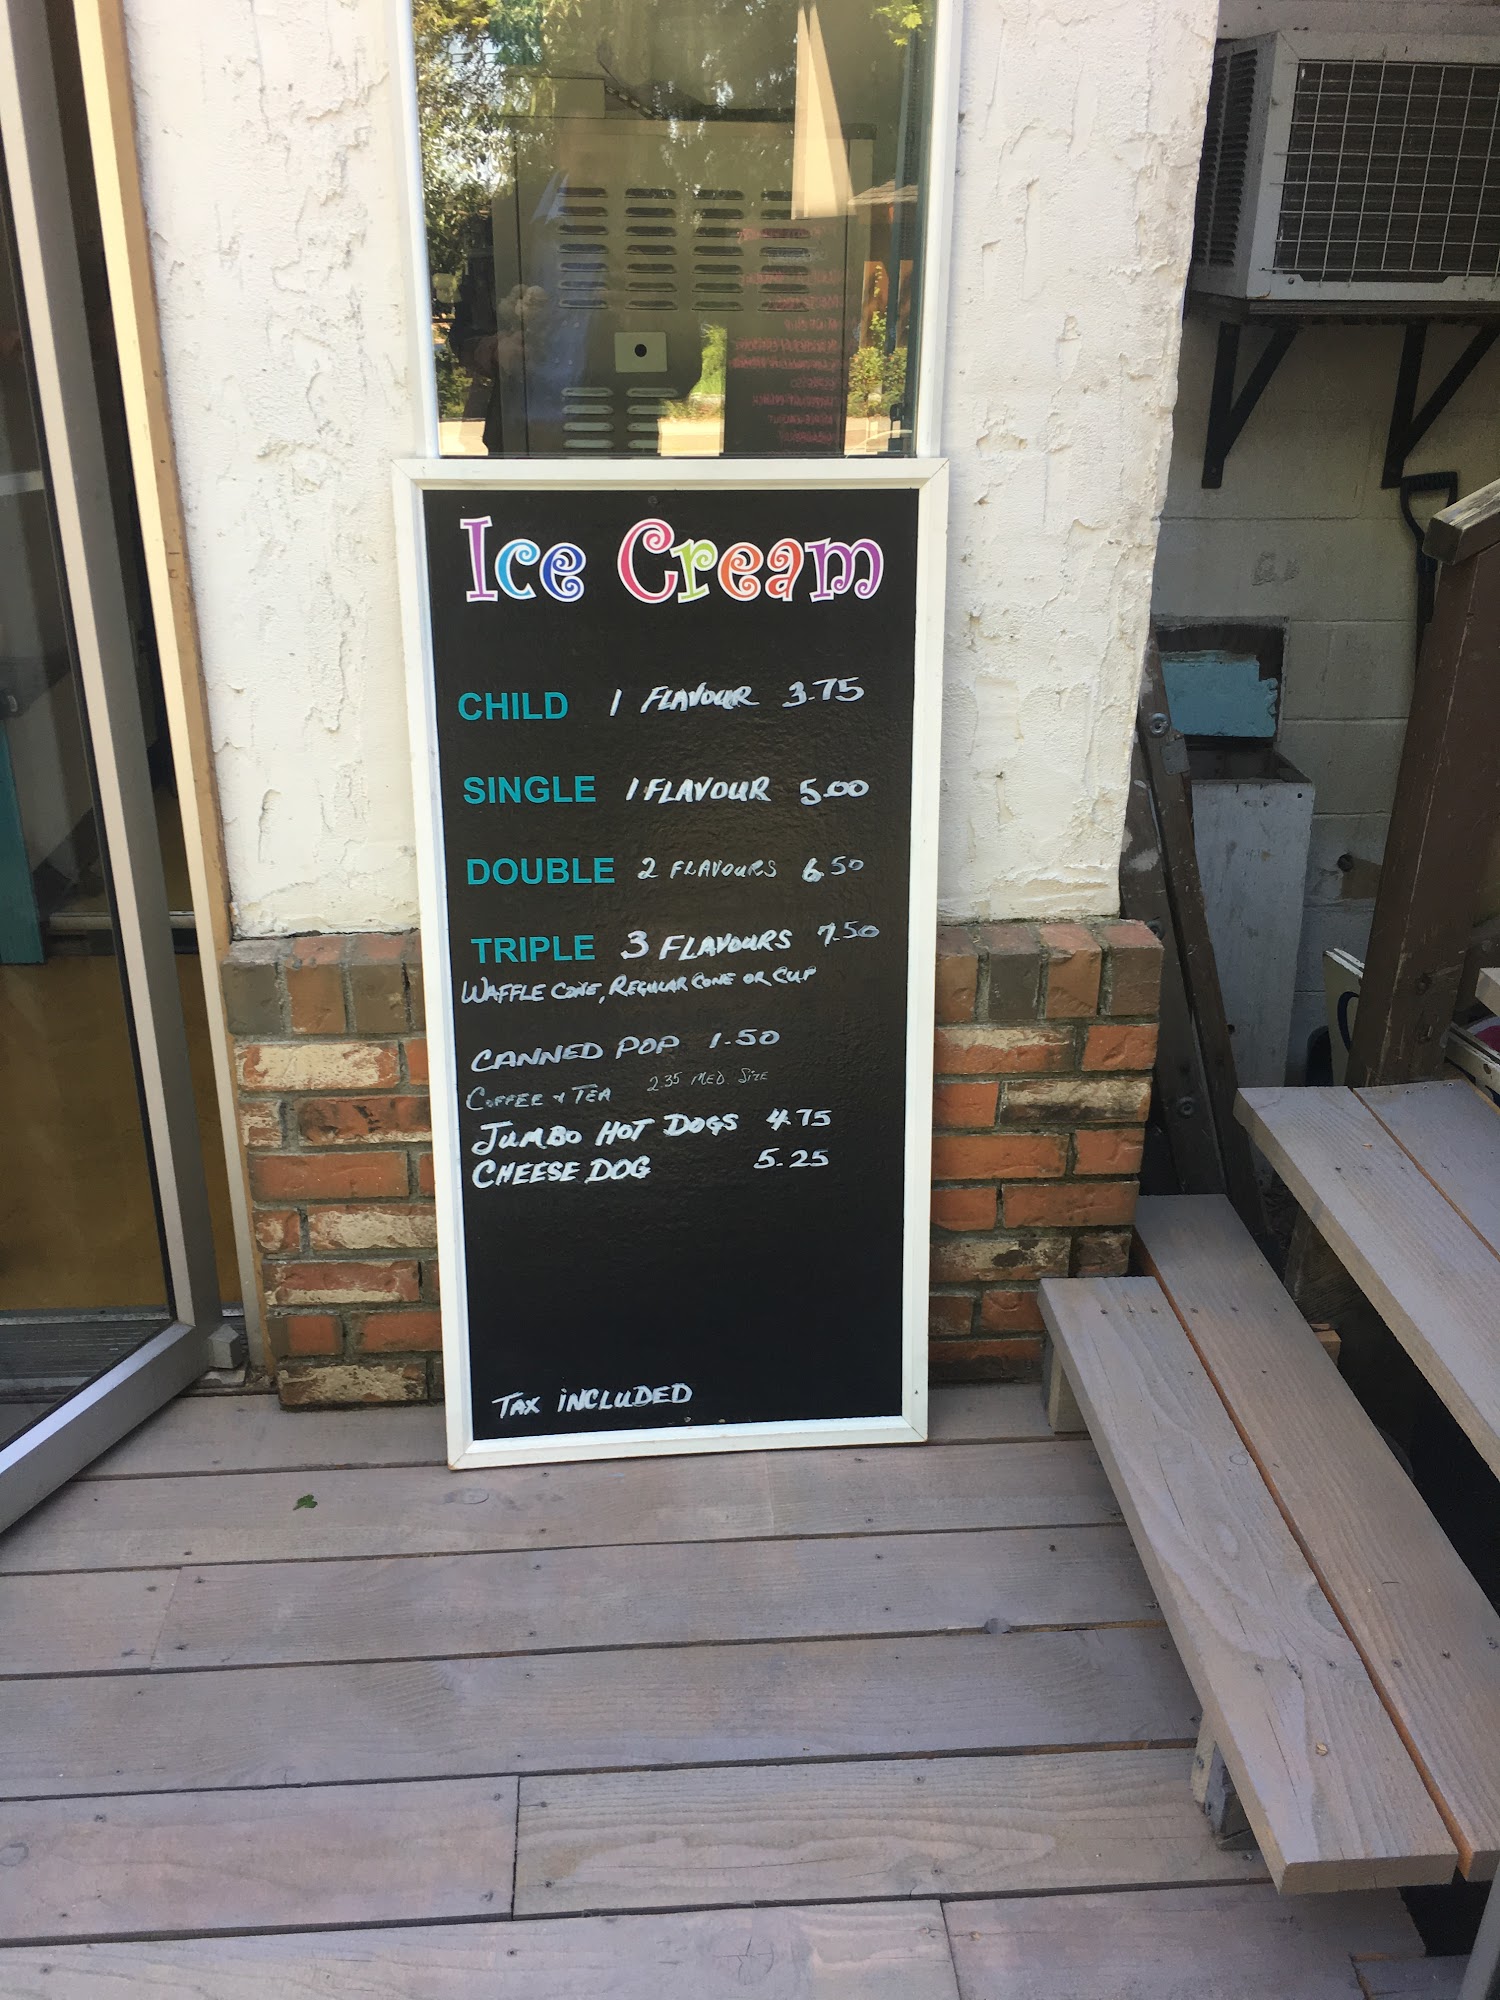 Ice Cream
CHILD 1 FLAVOUR 3.75
SINGLE 1 FLAVOUR 5.00
DOUBLE 2 FLAVOURS 6.50
TRIPLE 3 FLAVOURS 7.50
WAFFLE CONE, REGULAR CONE OR CUP
CANNED POP 1.50
COFFEE & TEA 2.35 MED SIZE
JUMBO HOT DOGS 4.75
CHEESE DOG 5.25
TAX INCLUDED